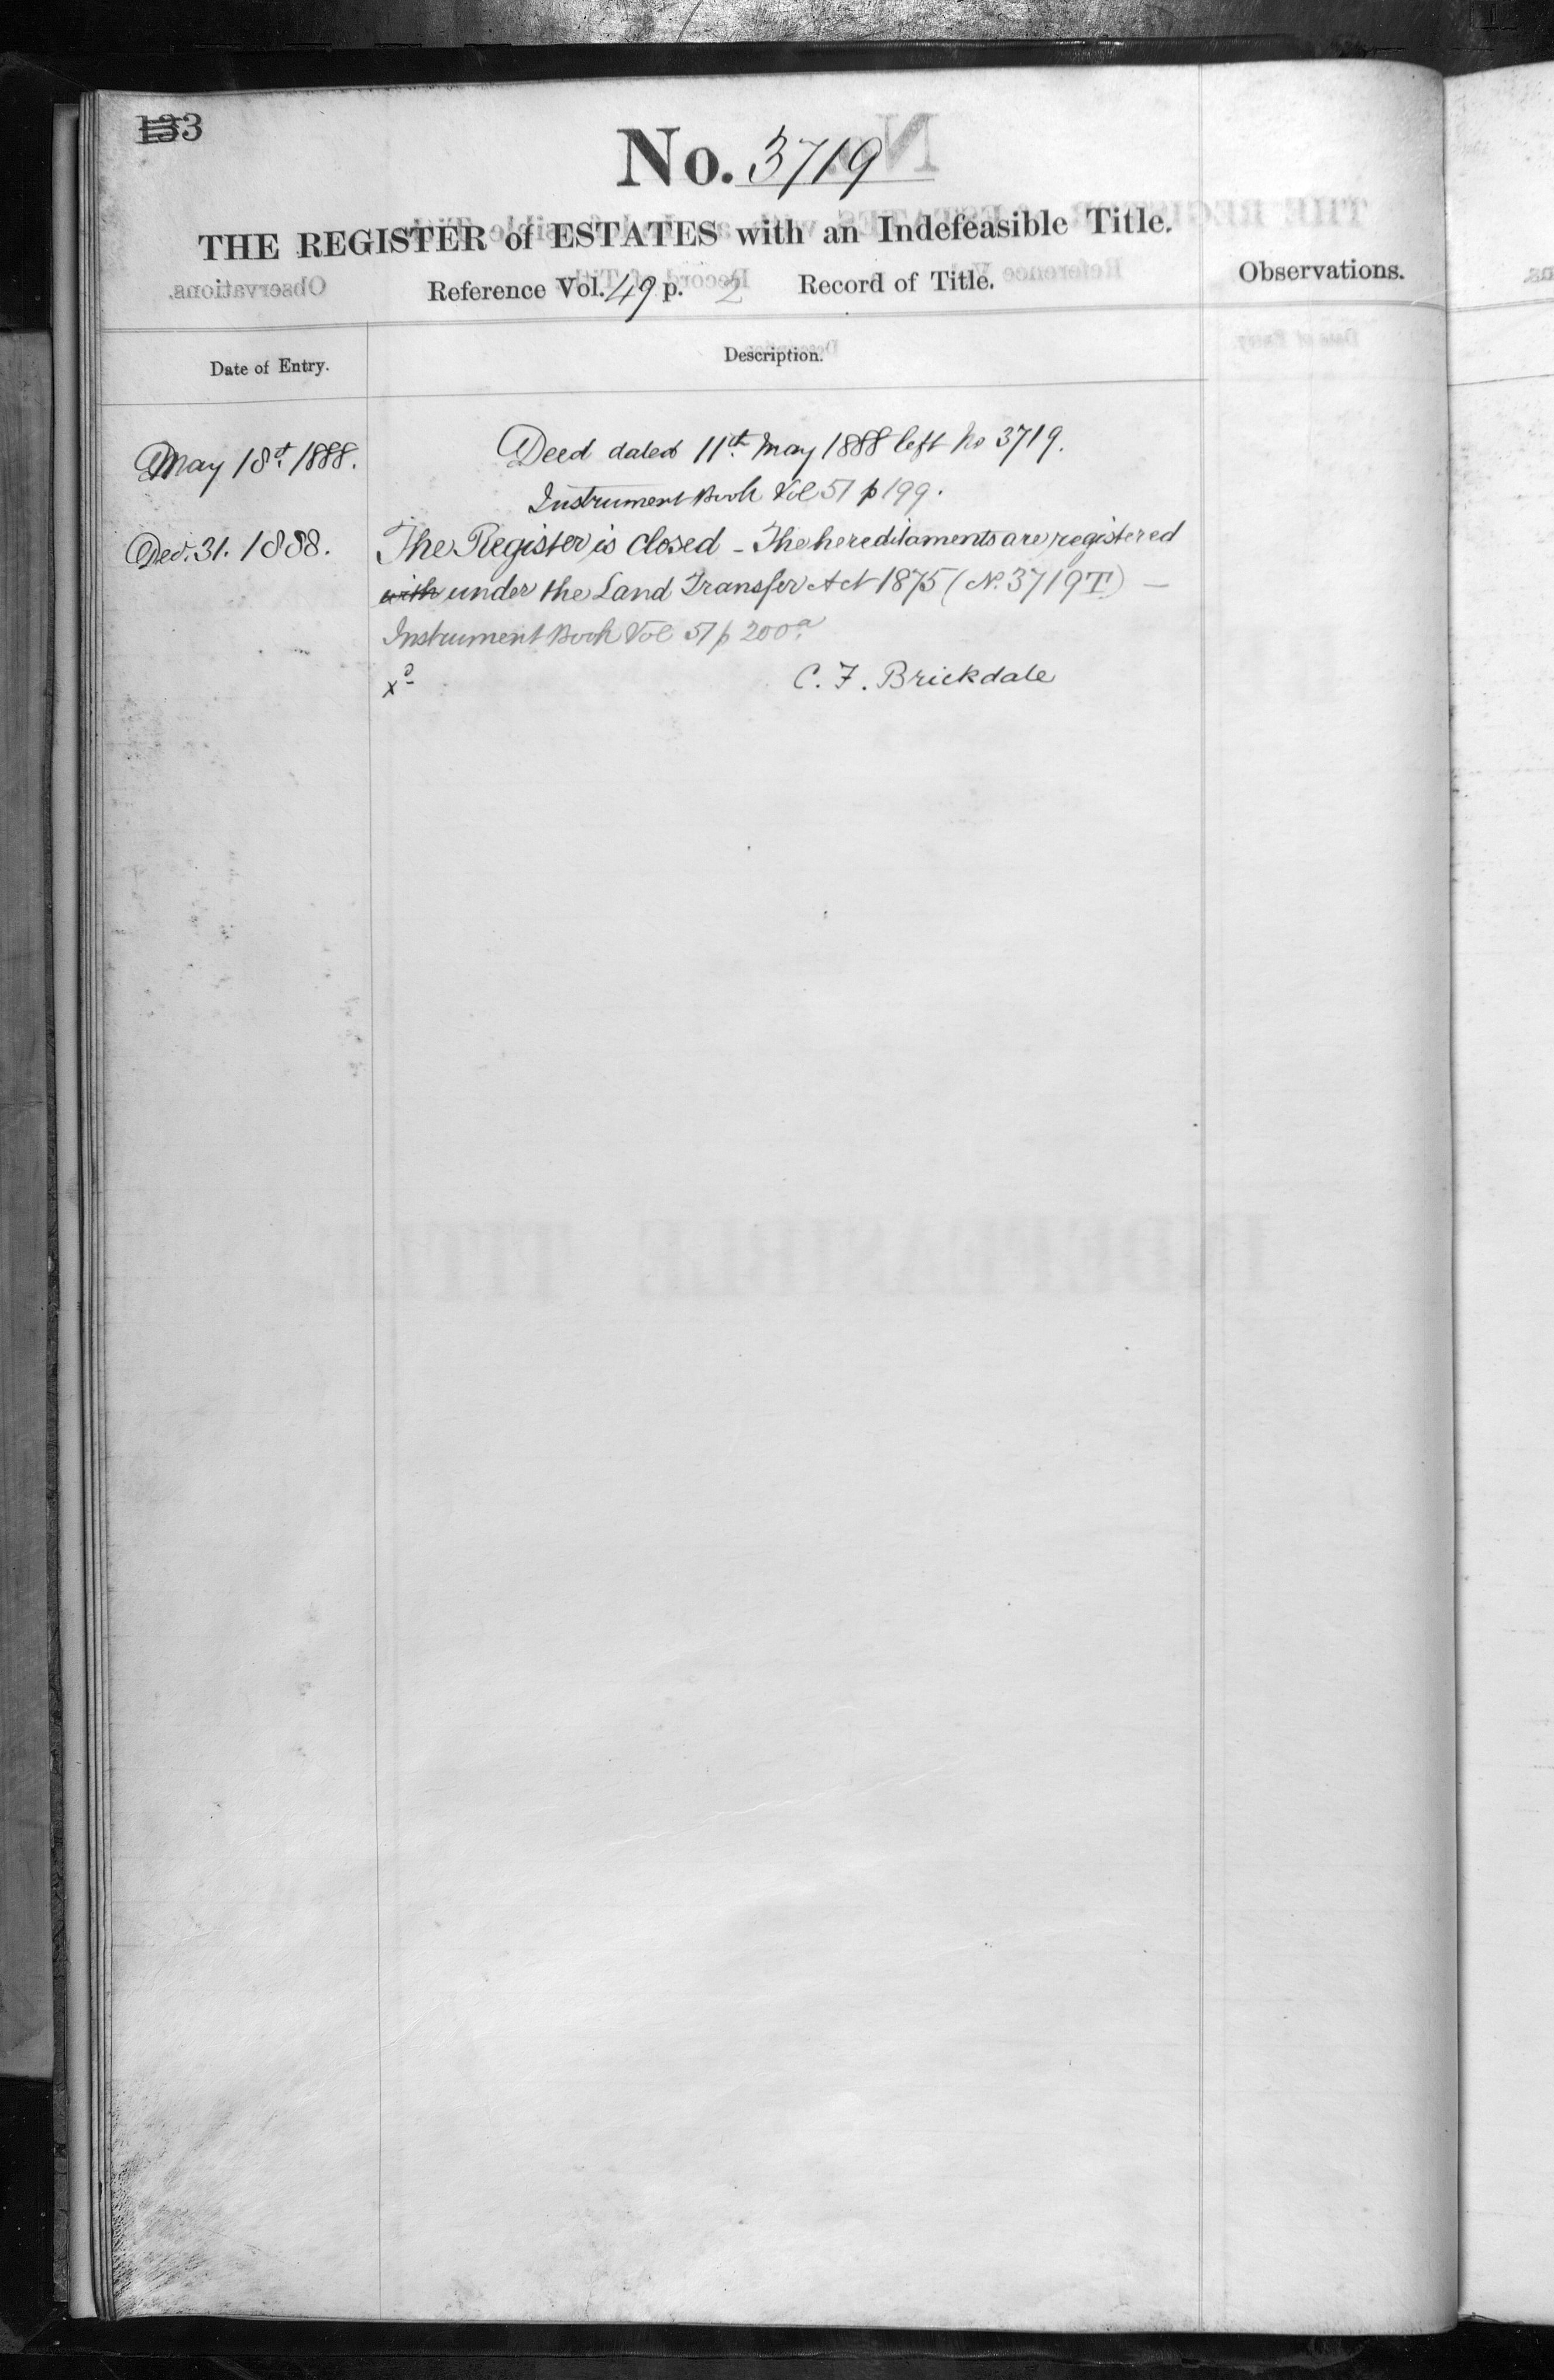 133
No. 3719
THE REGISTER of ESTATES with an Indefeasible Title.
Reference Vol. 49 p. 2 Record of Title.
Observations.
Date of Entry.
Description.
May 18th. 1888.
Deed dated 11th. May 1888 left No 3719.
Instrument Book Vol 51 p 199.
Dec. 31. 1888.
The Register is closed - The hereditaments are registered
with under the Land Transfer Act 1875 (No. 3719T) -
Instrument Book Vol 51 p 200a.
xd
C. F. Brickdale